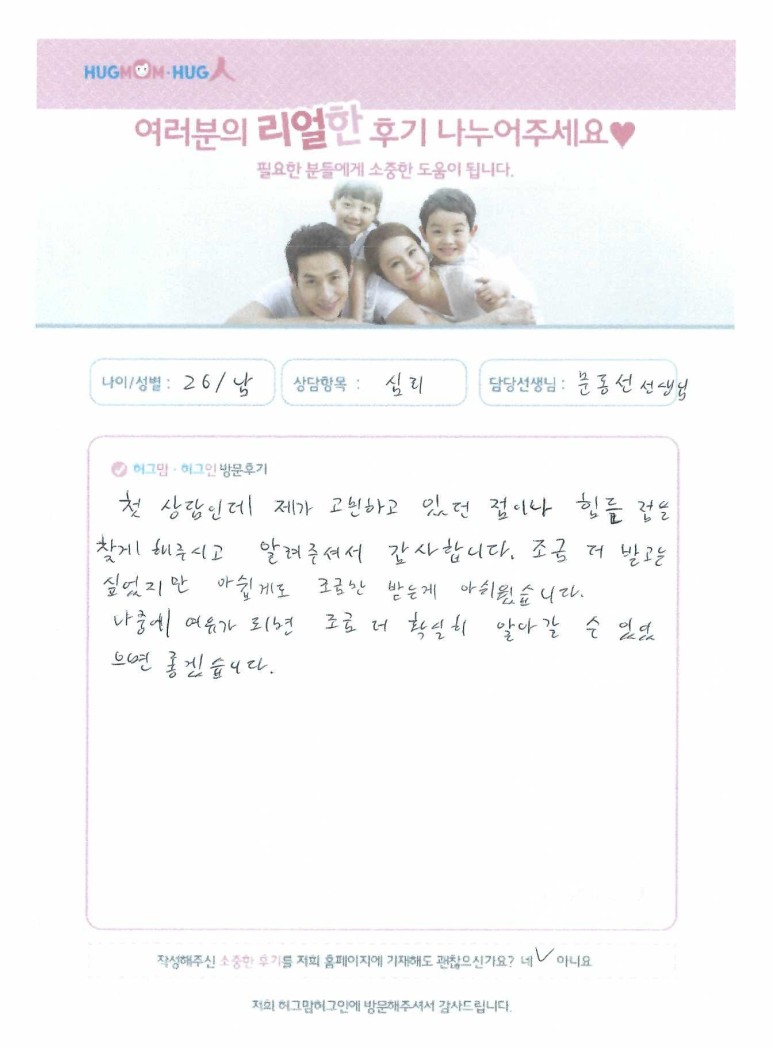 HUGMOM·HUG人
여러분의 리얼한 후기 나누어주세요♥
필요한 분들에게 소중한 도움이 됩니다.
나이/성별 : 26/남 상담항목 : 심리 담당선생님 : 문동선 선생님
허그맘·허그인 방문후기
첫 상담인데 제가 고민하고 있던 점이나 힘들 걸
찾게 해주시고 알려주셔서 감사합니다. 조금 더 받고는
싶었지만 아쉽게도 조금만 받는게 아쉬웠습니다.
나중에 여유가 되면 조금 더 확실히 알아갈 수 있었
으면 좋겠습니다.
작성해주신 소중한 후기를 저희 홈페이지에 기재해도 괜찮으신가요? 네 ✓ 아니요
저희 허그맘허그인에 방문해주셔서 감사드립니다.